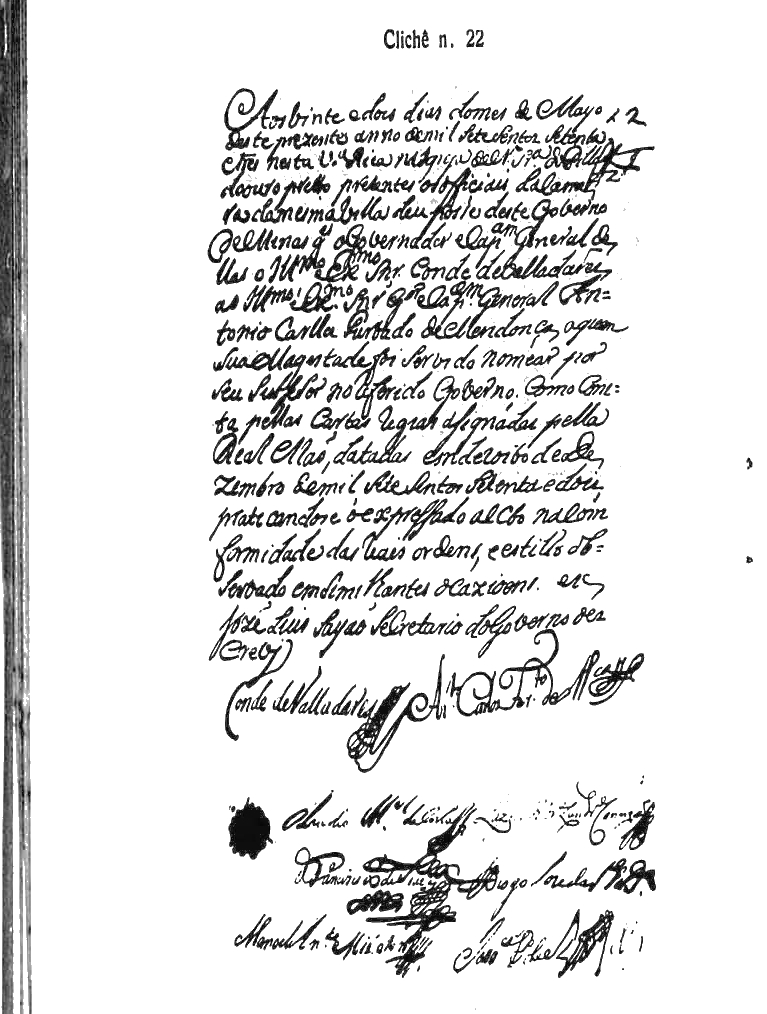 Clichê n. 22
Aos vinte e dous dias do mes de Mayo 22
deste prezente anno de mil sete sentos setenta
e tres nesta V.ª Rica
do ouro preto prezentes os officiais da Came
ra da mesma Villa deu posse deste Governo
de Minas o Governador e Capam General de
llas o Illmo e Exmo Snr. Conde de Valladares
ao Illmo e Exmo Snr Gor e Capam General An=
tonio Carllos Furtado de Mendonça, a quem
Sua Magestade foi servido nomear por
seu Sussesor no referido Governo. Como Cons=
ta pellas Cartas Regias asignádas pella
Real Maõ, datadas em de de De
zembro de mil sete sentos setenta e dous
praticandose o expressado acto na Con
formidade das Reais ordens, e estillo ob=
servado em similhantes ocazioens. eu
José Luis Sayaõ Secretario do Governo o es
crevy
Conde de Valladares Anto Carlos Furdo de Mça
Claudio Mel da Costa
Francisco de Diogo
Manoel José